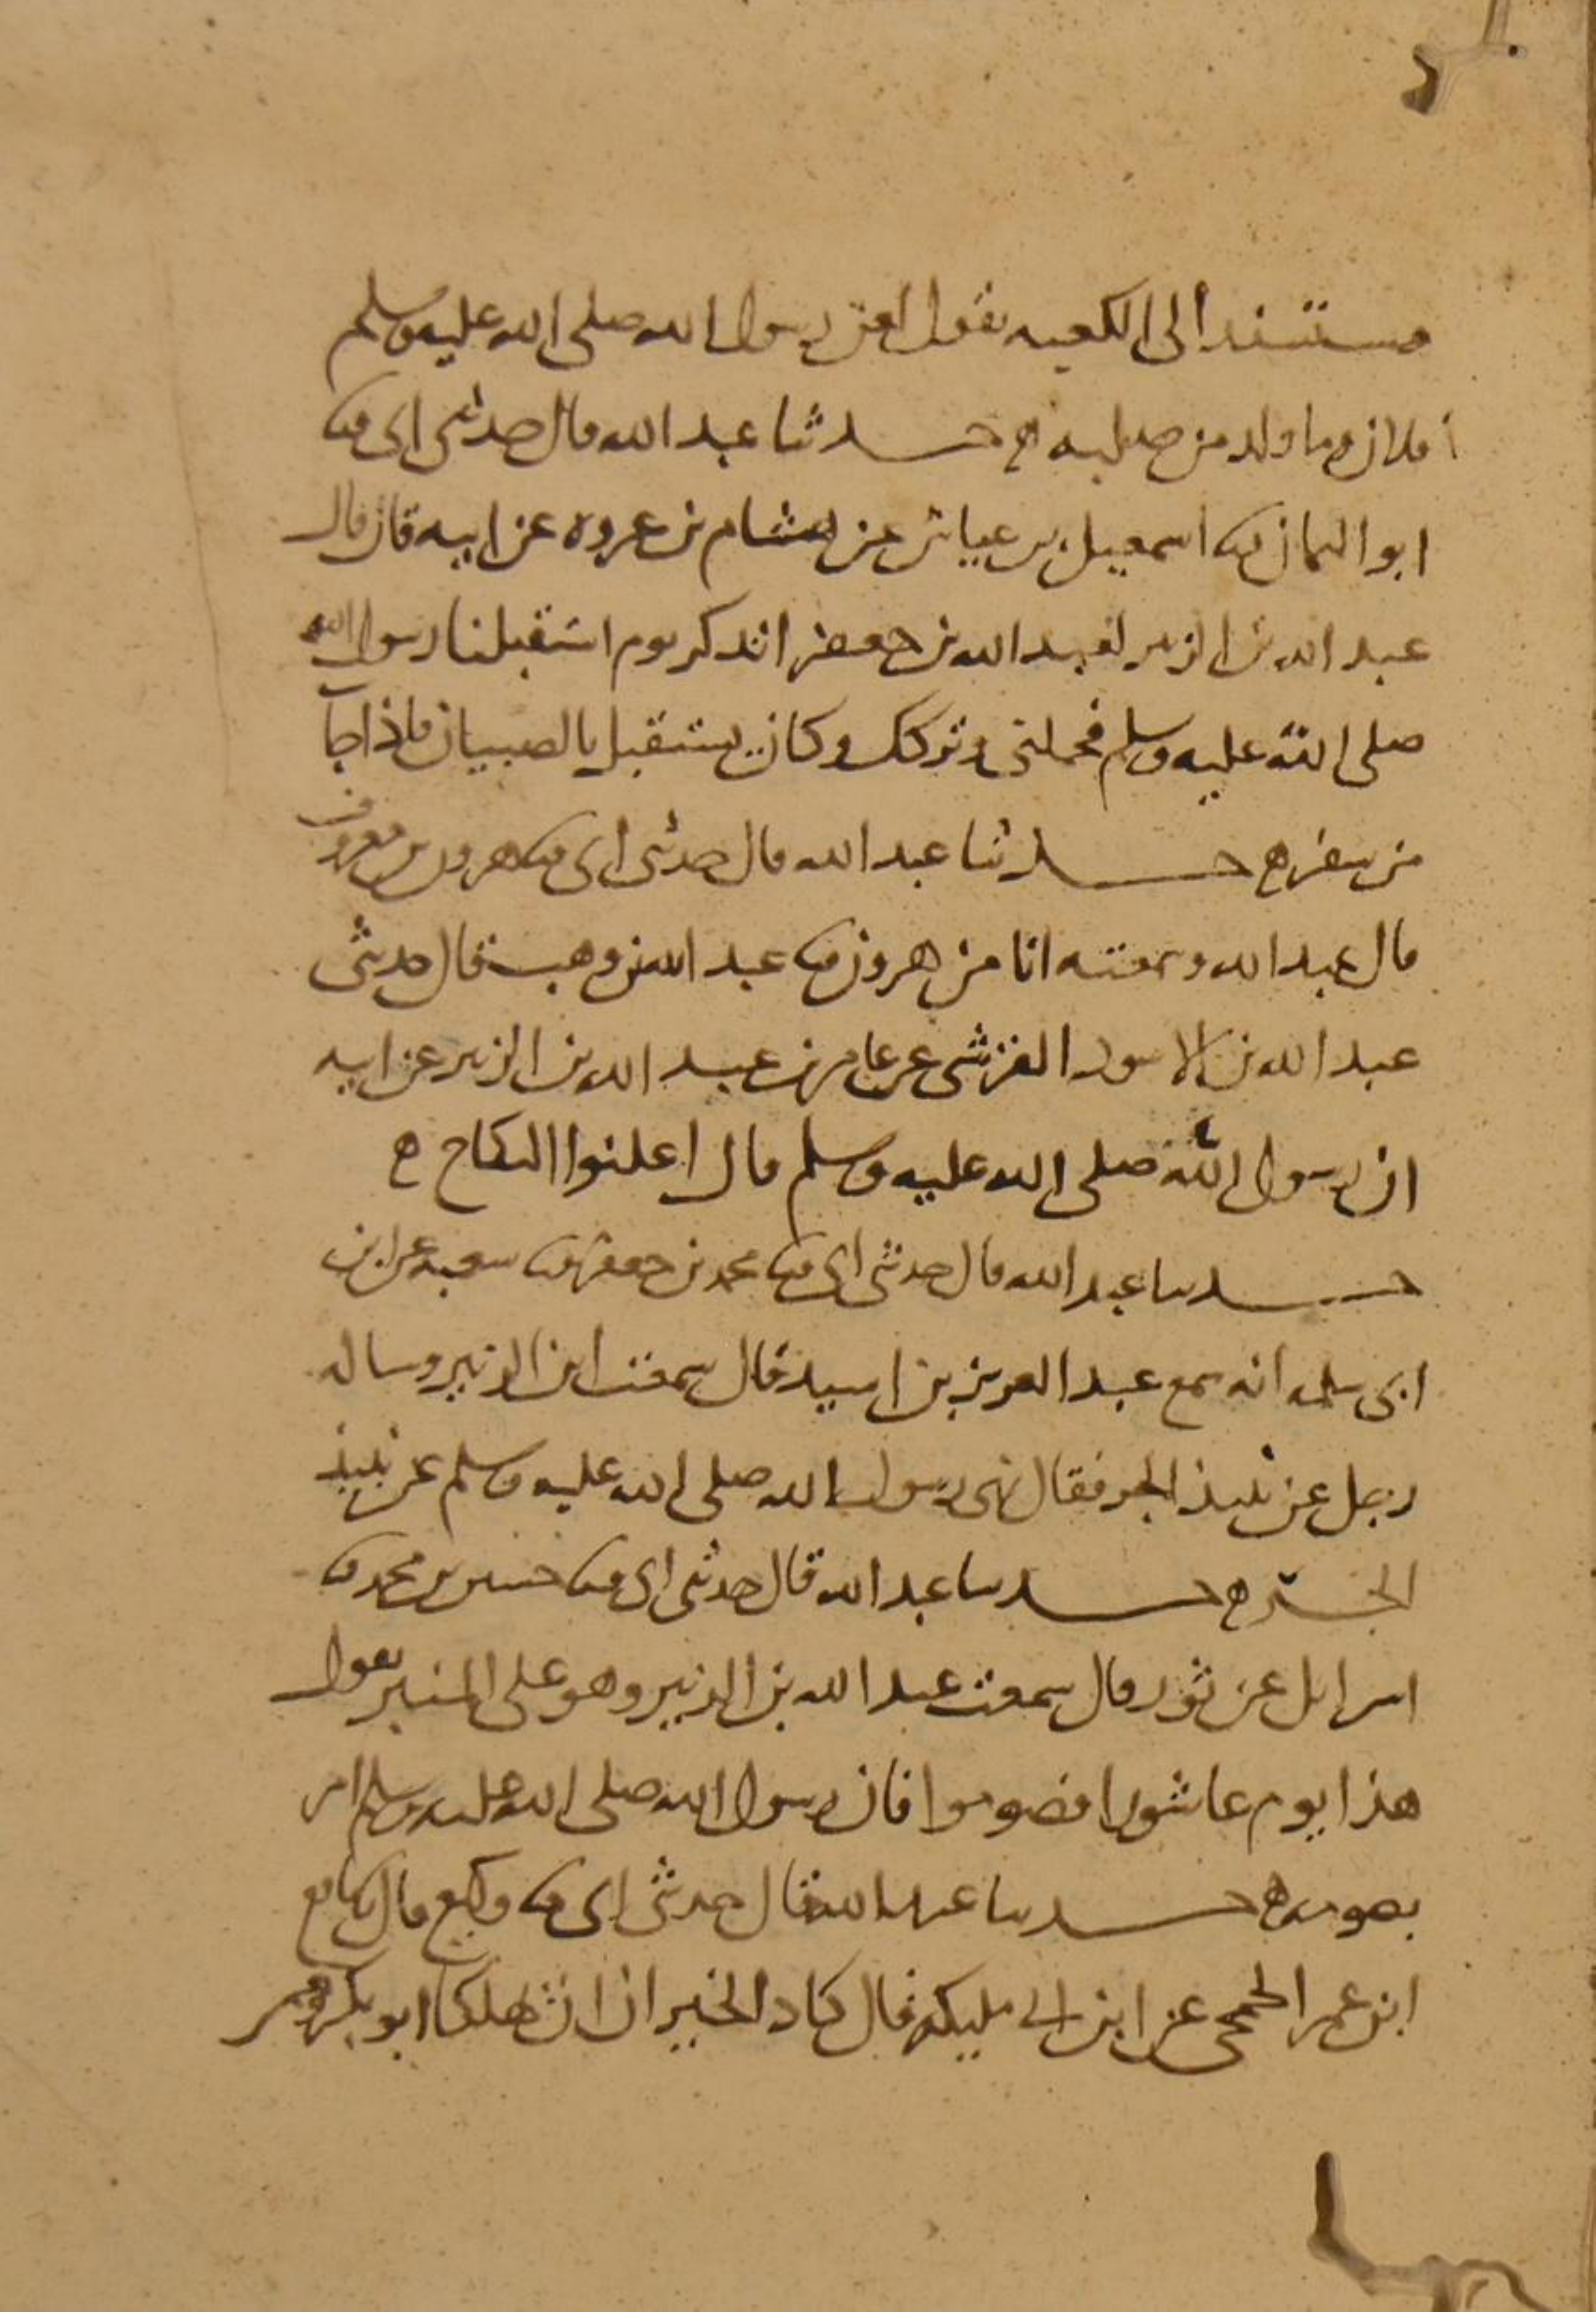 مستندا الى الكعبه يقول لعن رسول الله صلى الله عليه وسلم
فلان وما ولد من صلبه ه حدثنا عبد الله قال حدثنى ابى ثنا
ابو اليمان ثنا اسمعيل بن عياش عن هشام بن عروه عن ابيه قال قال
عبد الله بن الزبير لعبد الله بن جعفر اتذكر يوم استقبلنا رسول الله
صلى الله عليه وسلم فحملنى وتركك وكان يستقبل بالصبيان اذا جا
من سفر ه حدثنا عبد الله قال حدثنى ابى ثنا هرون بن معروف
قال عبد الله وسمعته انا من هرون ثنا عبد الله بن وهب قال حدثنى
عبد الله بن الاسود القرشى عن عامر بن عبد الله بن الزبير عن ابيه
ان رسول الله صلى الله عليه وسلم قال اعلنوا النكاح ه
حدثنا عبد الله قال حدثنى ابى ثنا محمد بن جعفر ثنا شعبه عن ابن
ابى سلمه انه سمع عبد العزيز بن اسيد قال سمعت ابن الزبير وساله
رجل عن نبيذ الجر فقال نهى رسول الله صلى الله عليه وسلم عن نبيذ
الجر ه حدثنا عبد الله قال حدثنى ابى ثنا حسين بن محمد ثنا
اسرائل عن ثور قال سمعت عبد الله بن الزبير وهو على المنبر يقول
هذا يوم عاشورا فصوموا فان رسول الله صلى الله عليه وسلم امر
بصومه ه حدثنا عبد الله قال حدثنى ابى ثنا وكيع قال ثنا نافع
ابن عمر الجمحى عن ابن ابى مليكه قال كاد الخيران ان يهلكا ابو بكر وعمر